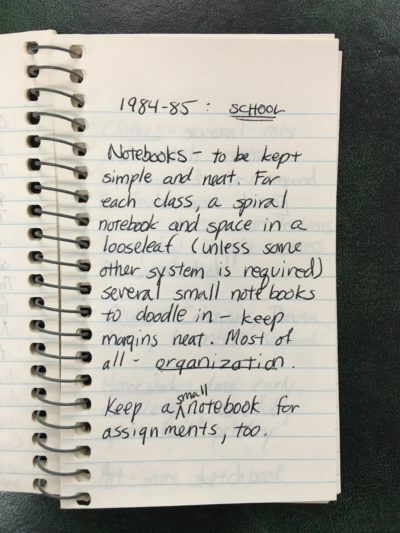 1984-85 : SCHOOL
Notebooks - to be kept
simple and neat. For
each class, a spiral
notebook and space in a
looseleaf (unless some
other system is required)
several small notebooks
to doodle in - keep
margins neat. Most of
all - organization.
Keep a small notebook for
assignments, too.